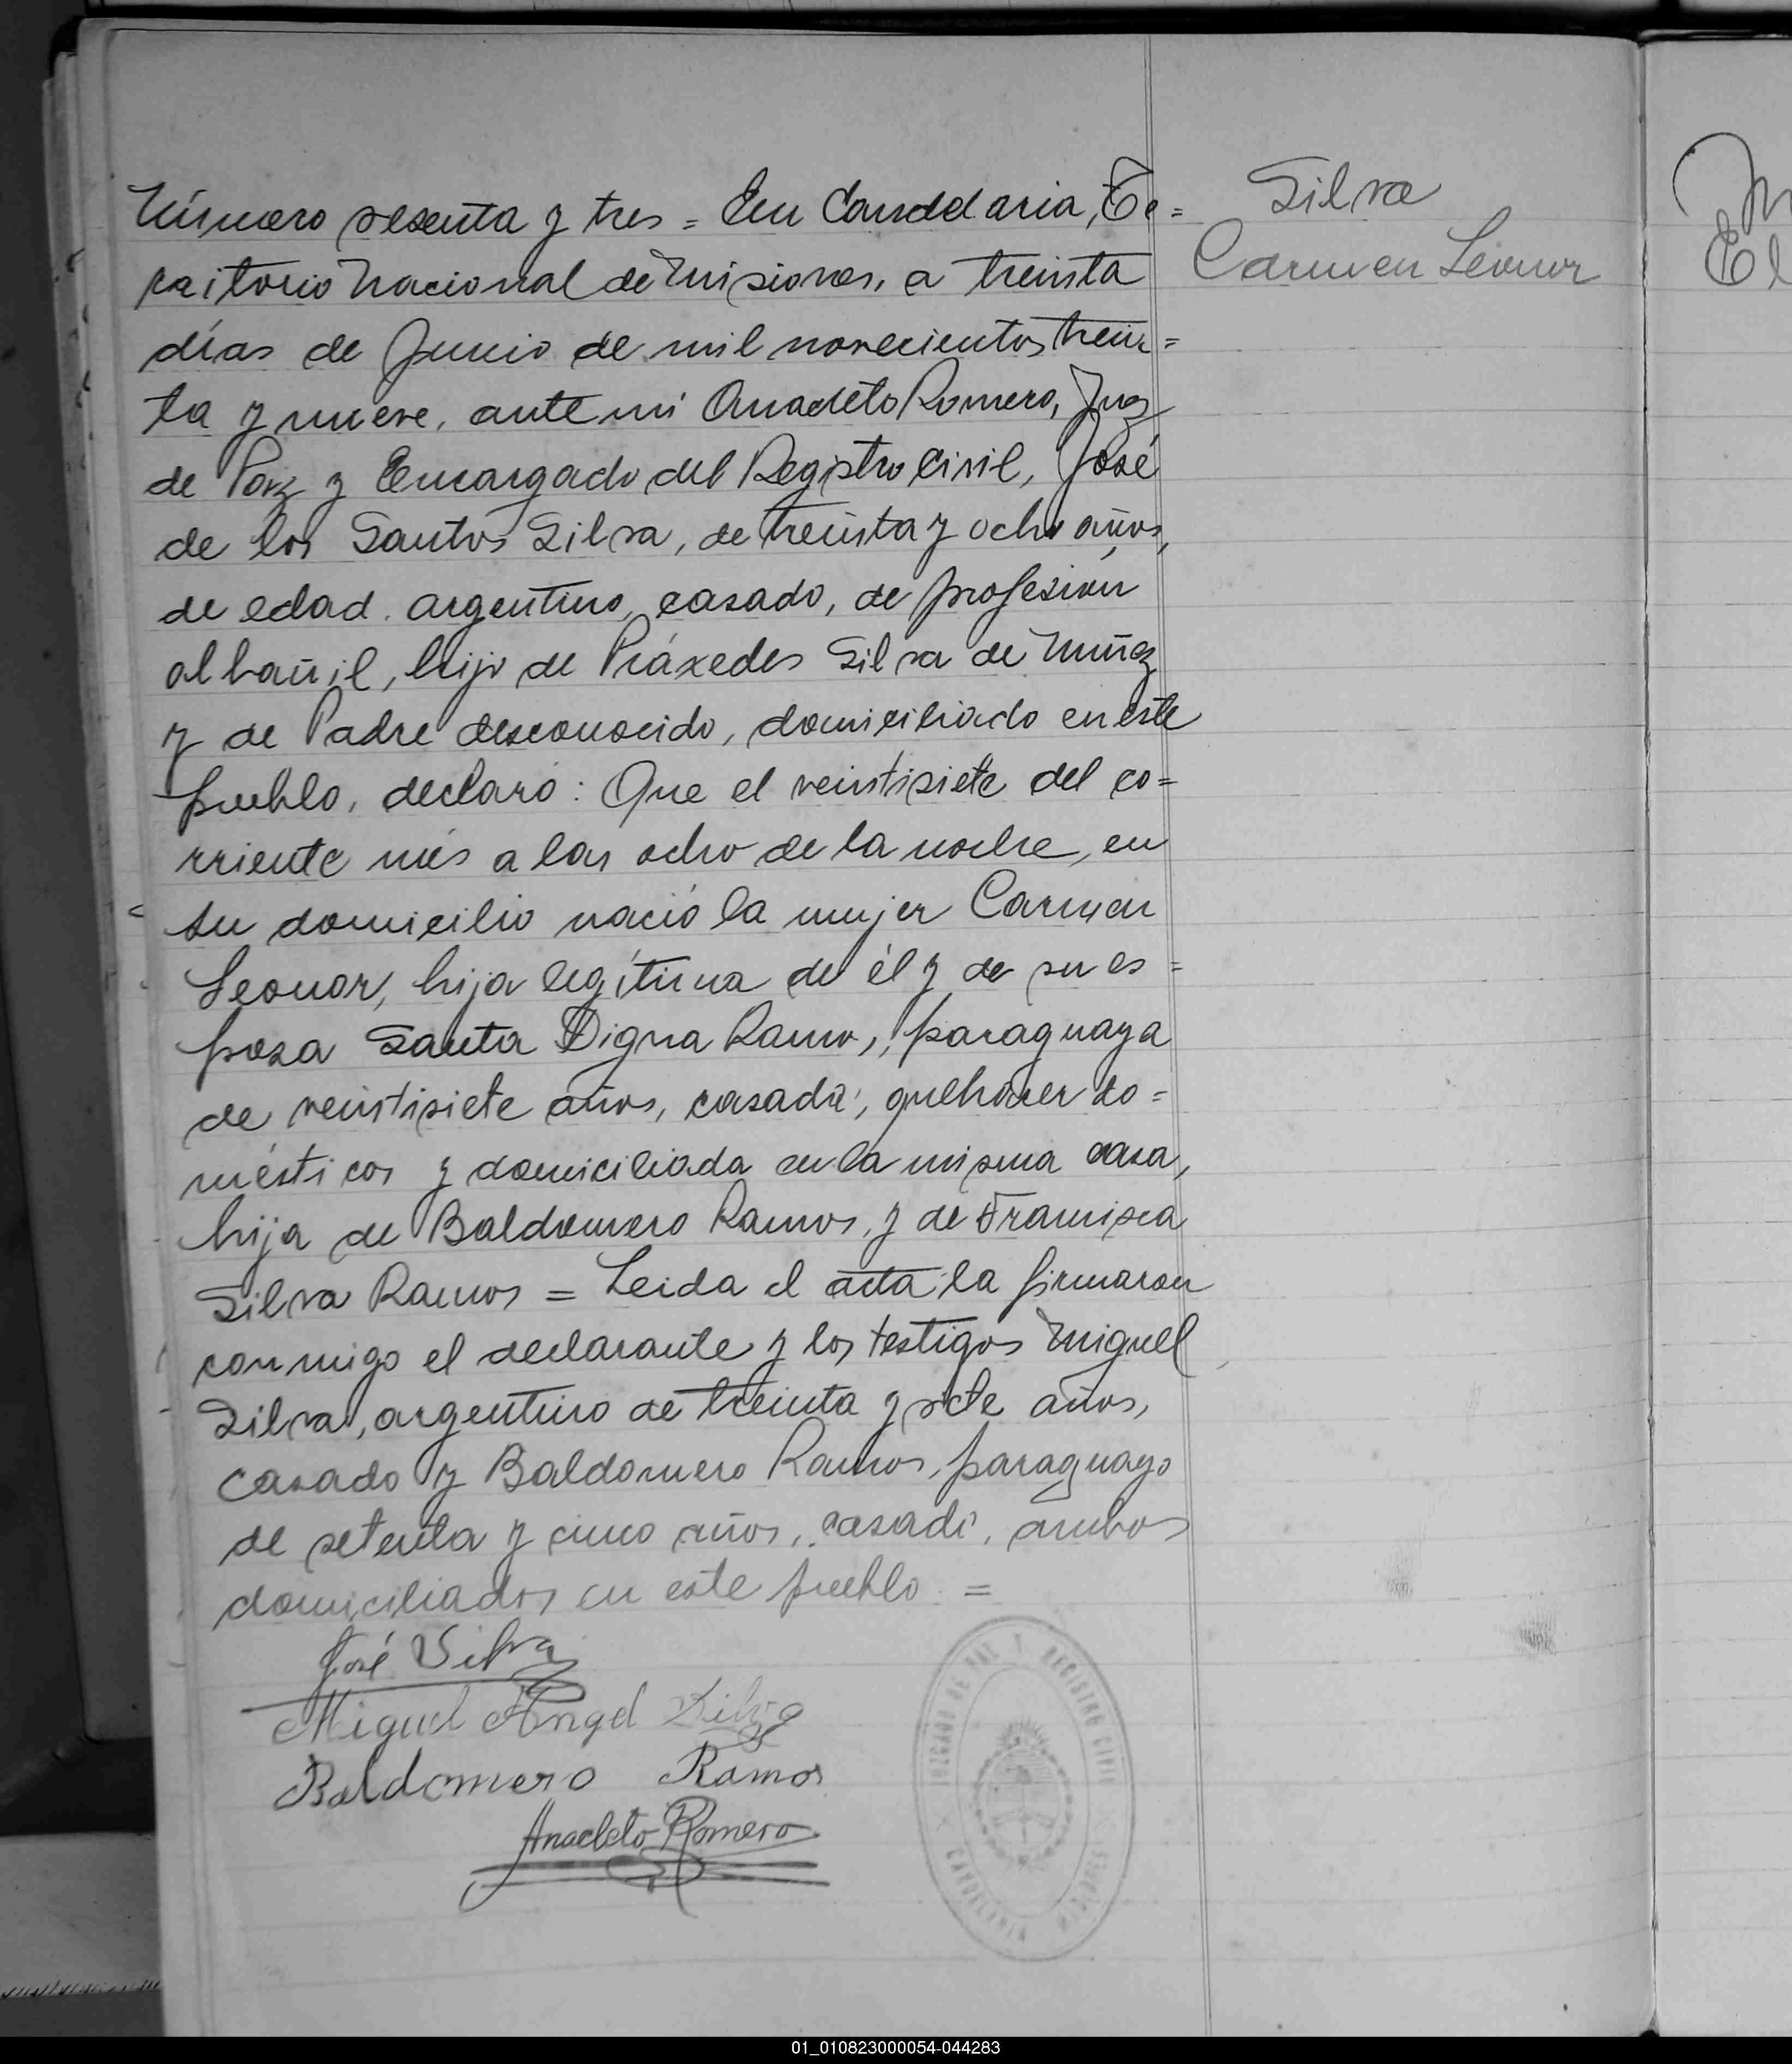 Número sesenta y tres = En Candelaria, Te=
Silva
rritorio Nacional de Misiones, a treinta
Carmen Leonor
El
días de Junio de mil novecientos trein=
ta y nueve, ante mi Anacleto Romero, Juez
de Paz y Encargado del Registro Civil, José
de los Santos Silva, de treinta y ocho años,
de edad. argentino, casado, de profesión
albañil, hijo de Práxedes Silva de Muñez
y de Padre desconocido, domiciliado en este
pueblo, declaró: Que el veintisiete del co=
rriente més a las ocho de la noche, en
su domicilio nació la mujer Carmen
Leonor, hija legítima de él y de su es=
posa Santa Digna Ramos, paraguaya
de veintisiete años, casada, quehacer do=
mésticos y domiciliada en la misma casa,
hija de Baldomero Ramos, y de Francisca
Silva Ramos = Leida el acta la firmaron
conmigo el declarante y los testigos Miguel
Silva, argentino de treinta y siete años,
casado y Baldomero Ramos, paraguayo
de setenta y cinco años, casado, ambos
domiciliados en este pueblo. =
José Silva
Miguel Angel Silva
Baldomero Ramos
Anacleto Romero
JUZGADO DE PAZ Y REGISTRO CIVIL
CANDELARIA MISIONES
01_010823000054-044283